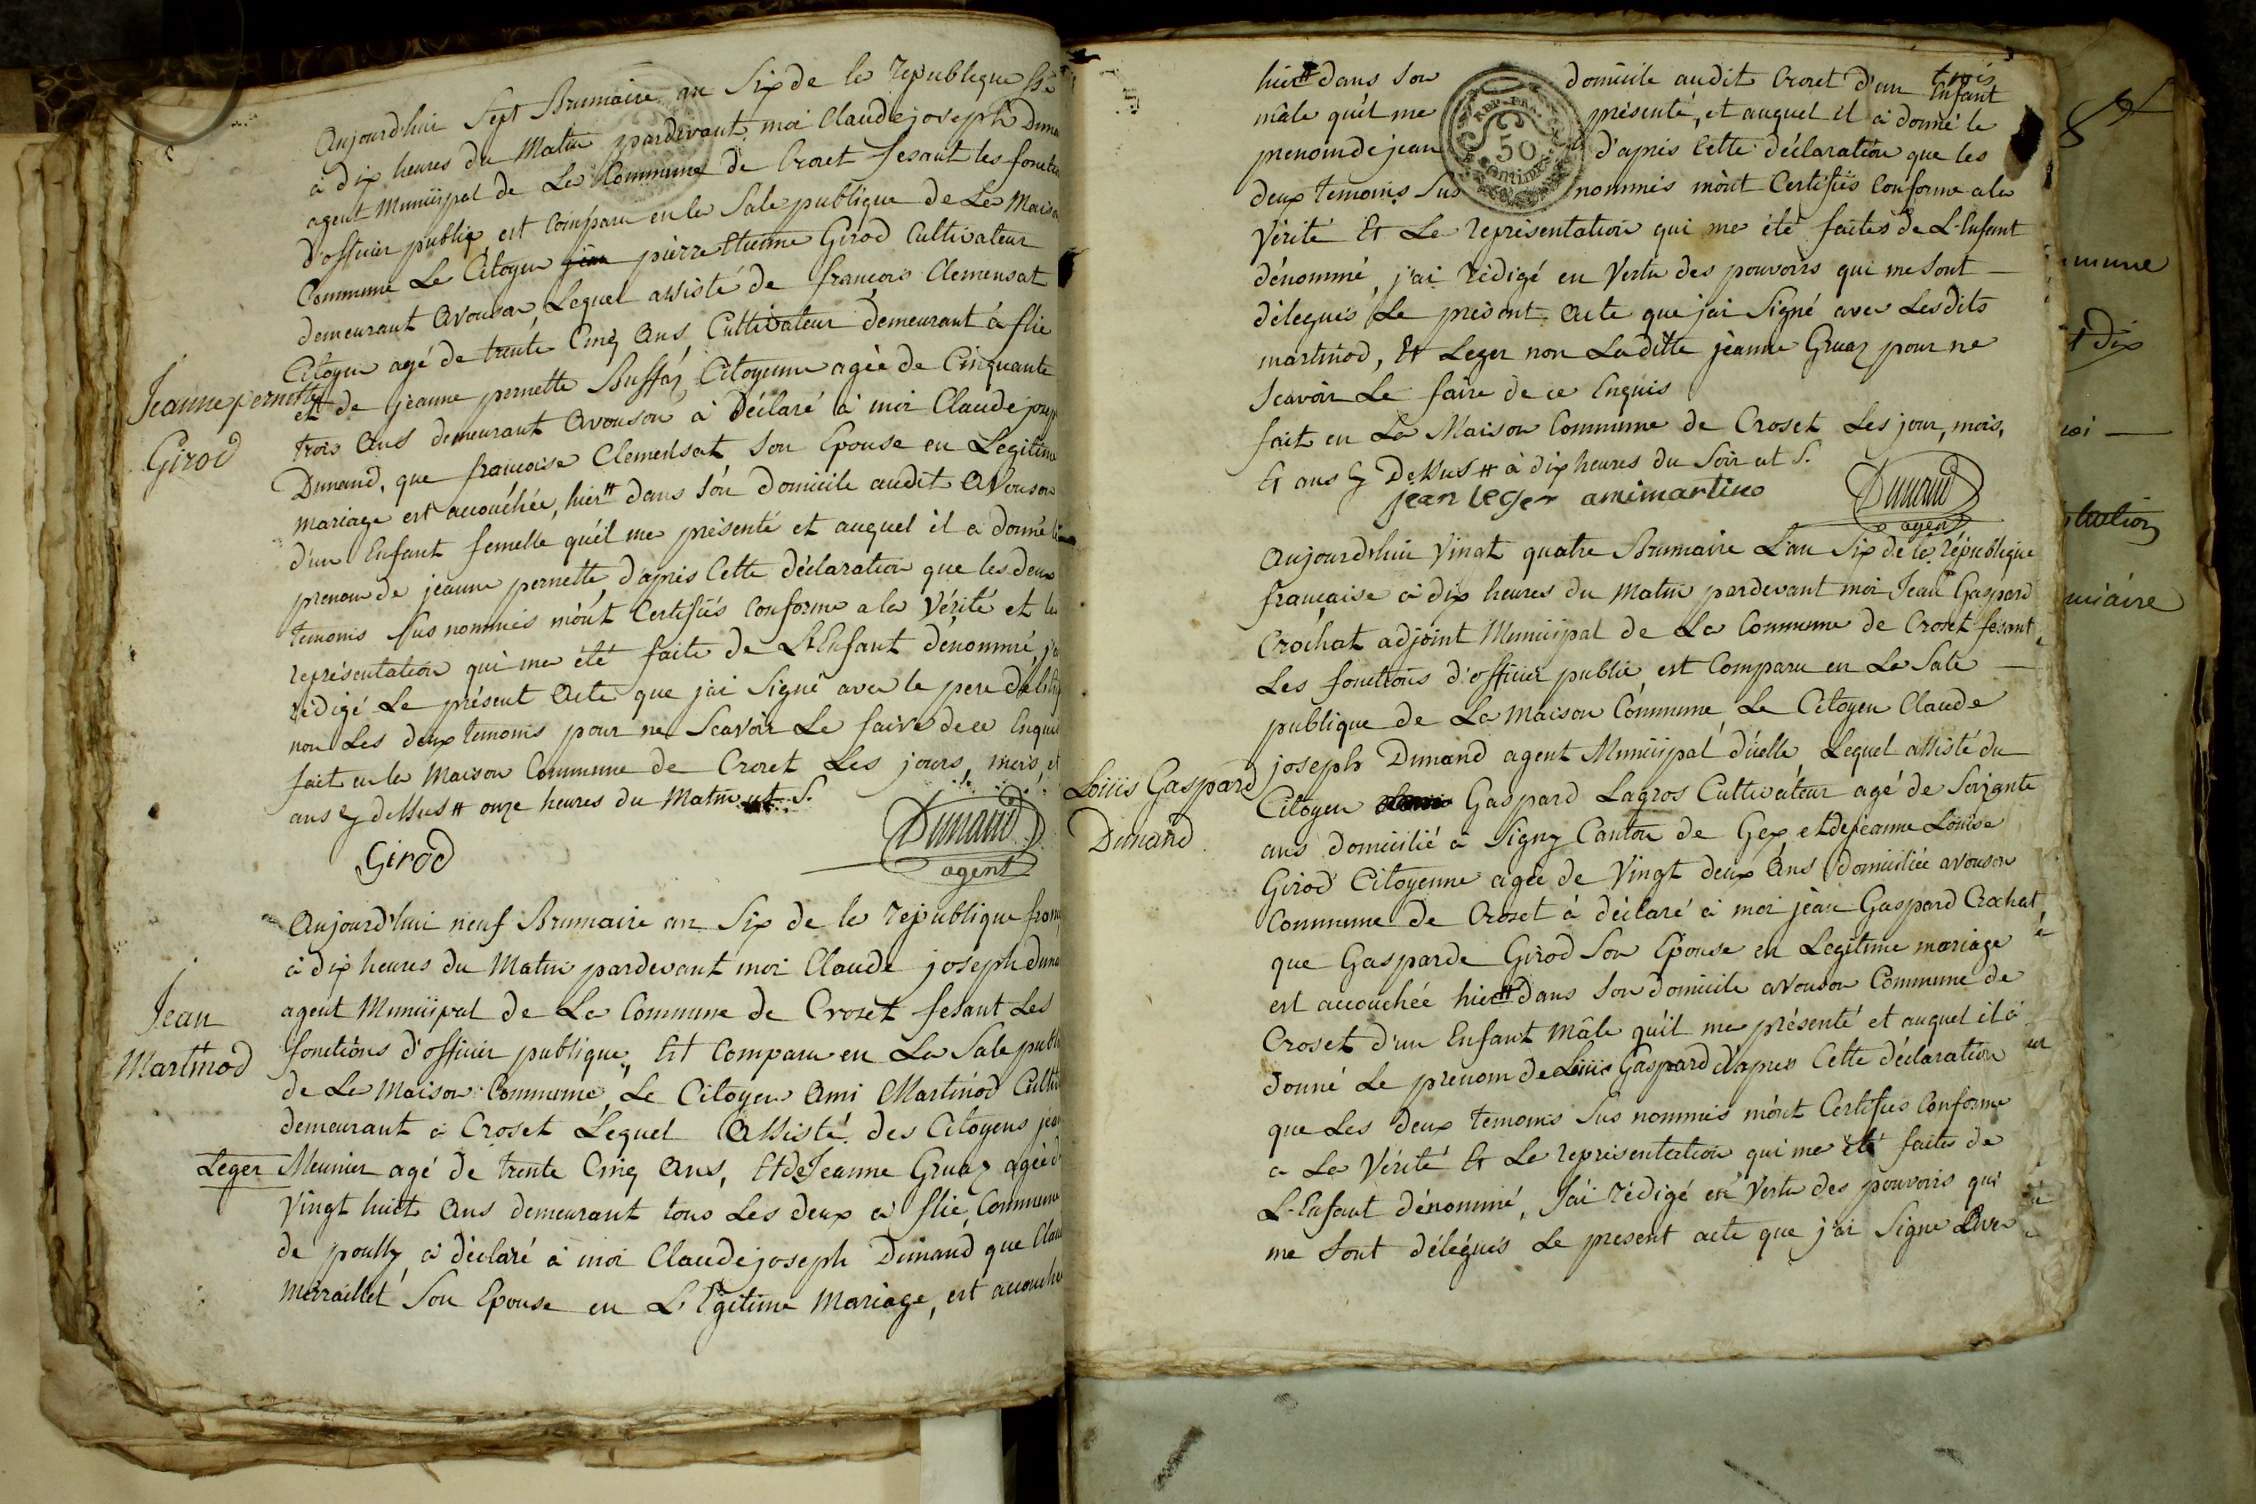 Aujourd'hui Sept Brumaire an Six de la republique
à dix heures du Matin pardevant moi Claude joseph Duna
agent Municipal de La Commune de Crozet fesant les foncti
d'officier publiq est Comparu en la Sale publique de La Maiso
Commune Le Citoyen pierre Etienne Girod Cultivateur
demeurant Avouson, Lequel assisté de françois Clemensat
Citoyen agé de trente Cinq Ans, Cultivateur demeurant à flie
et de jeanne pernette Buffaz Citoyenne agée de Cinquante
trois Ans demeurant Avouson à Déclaré à moi Claude josep
Dunand, que françoise Clemensat Son Epouse en Legitime
mariage est accouchée, hier # dans Son domicile audit Avouson
d'un Enfant femelle qu'il me présenté et auquel il a donné le
prenom de jeanne pernette, d'après Cette déclaration que les deux
temoins Sus nommés m'ont Certifiés Conforme a la Vérité et la
représentation qui me été faite de L'Enfant dénommé, j'ai
rédigé Le présent Acte que j'ai Signé avec le pere
non Les deux temoins pour ne Scavoir Le faire de ce Enquis
fait en la Maison Commune de Crozet Les jours, mois, et
ans y dessus # onze heures du Matin ut S.
Jeanne pernette
Girod
Girod
Dunand
agent
Aujourd'hui neuf Brumaire an Six de la republique franç
à dix heures du Matin pardevant moi Claude joseph duna
agent Municipal de La Commune de Crozet fesant Les
fonctions d'officier publique, Est Comparu en La Sale publi
de La Maison Commune, Le Citoyen Ami Martinod Culti
demeurant à Croset Lequel Assisté des Citoyens jean
Leger Meunier agé de trente Cinq Ans, Et de Jeanne Gruaz agée d
Vingt huit Ans demeurant tous Les deux à flie, Commune
de pouilly, à déclaré à moi Claude joseph Dunand que Clau
Merraillet Son Epouse en Legitime Mariage, est accouchée
Jean
Martinod
hier # dans Son domicile audit Crozet d'un Enfant
trois
mâle qu'il me présenté, et auquel il à donné le
prenom de jean d'après Cette déclaration que les
deux temoins Sus nommés m'ont Certifiés Conforme a la
Vérité Et La représentation qui me été faites de L'Enfant
dénommé, j'ai rédigé en Vertu des pouvoirs qui me Sont
délegués Le present Acte que j'ai Signé avec Lesdits
martinod, Et Leger non Laditte jeanne Gruaz pour ne
Scavoir Le faire de ce Enquis
fait en La Maison Commune de Croset Les jour, mois,
Et ans y Dessus # à dix heures du Soir ut S.
jean leger amimartino
Dunand
agent
REP. FRA.
50
centimes
Aujourd'hui Vingt quatre Brumaire L'an Six de la république
française à dix heures du Matin pardevant moi Jean Gaspard
Crochat adjoint Municipal de La Commune de Crozet fesant
Les fonctions d'officier public est Comparu en La Sale
publique de La Maison Commune, Le Citoyen Claude
joseph Dunand agent Municipal d'uelle, Lequel assisté du
Citoyen Gaspard Lagros Cultivateur agé de Soixante
ans domicilié à Signy Canton de Gex et de jeanne Louise
Girod Citoyenne agée de Vingt deux Ans domiciliée avouson
Commune de Crozet à déclaré à moi jean Gaspard Crochat
que Gasparde Girod Son Epouse en Legitime mariage
est accouchée hier # dans Son domicile avouson Commune de
Croset d'un Enfant Mâle qu'il me présenté et auquel il à
donné Le prenom de Louis Gaspard d'apres Cette déclaration
que Les deux temoins Sus nommés m'ont Certifiés Conforme
a La Vérité Et La représentation qui me été faites de
L'Enfant dénommé, J'ai rédigé en Vertu des pouvoirs qui
me Sont délégués Le present acte que j'ai Signé Avec
Louis Gaspard
Dunand
mmune
t dix
moi